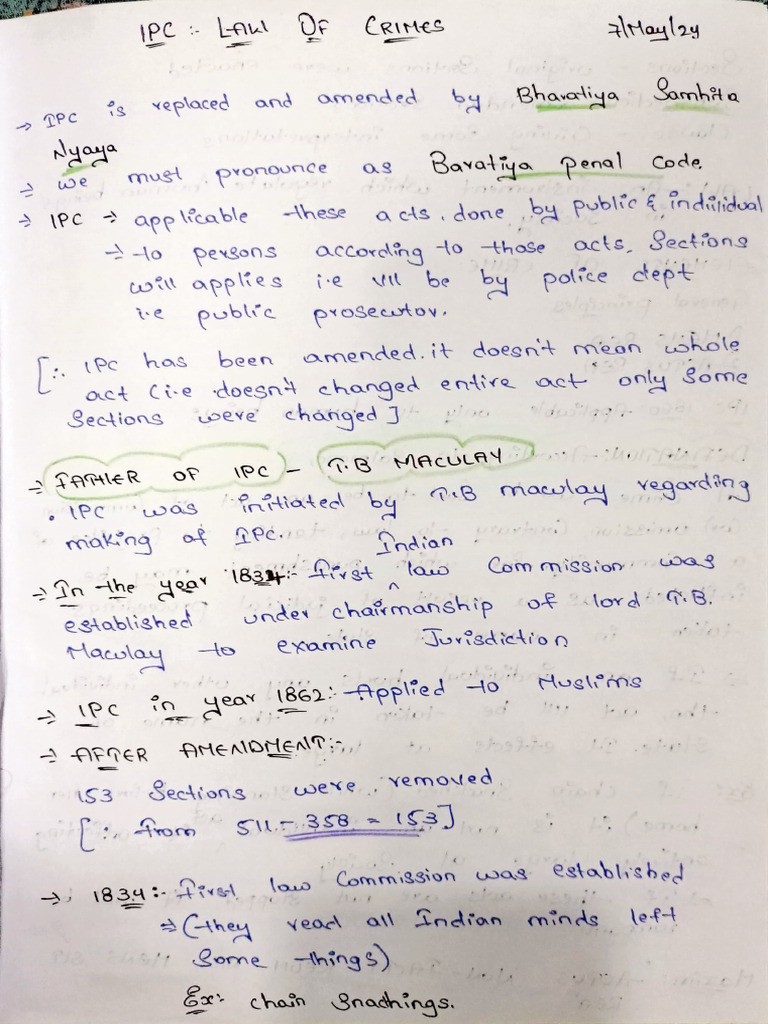 IPC :- LAW OF CRIMES 7/May/24
→ IPC is replaced and amended by Bharatiya Samhita
Nyaya
→ we must pronounce as Baratiya penal code.
→ IPC → applicable these acts. done by public & indiilidual
→ to persons according to those acts. Sections
will applies i.e VII be by police dept
i.e public prosecutor.
[∴ IPC has been amended. it doesn't mean whole
act (i.e doesn't changed entire act only some
Sections were changed]
→ FATHER OF IPC - T.B MACULAY
. IPC was initiated by T.B maculay regarding
making of IPC.
→ In the year 1834:- First Indian law Commission was
established under chairmanship of lord T.B.
Maculay to examine Jurisdiction
→ IPC in year 1862:- Applied to Muslims
→ AFTER AMENDMENT:-
153 Sections were removed
[∴ from 511 - 358 = 153]
→ 1834:- First law Commission was established
⇒ (they read all Indian minds left
Some things)
Ex:- chain Snadhings.